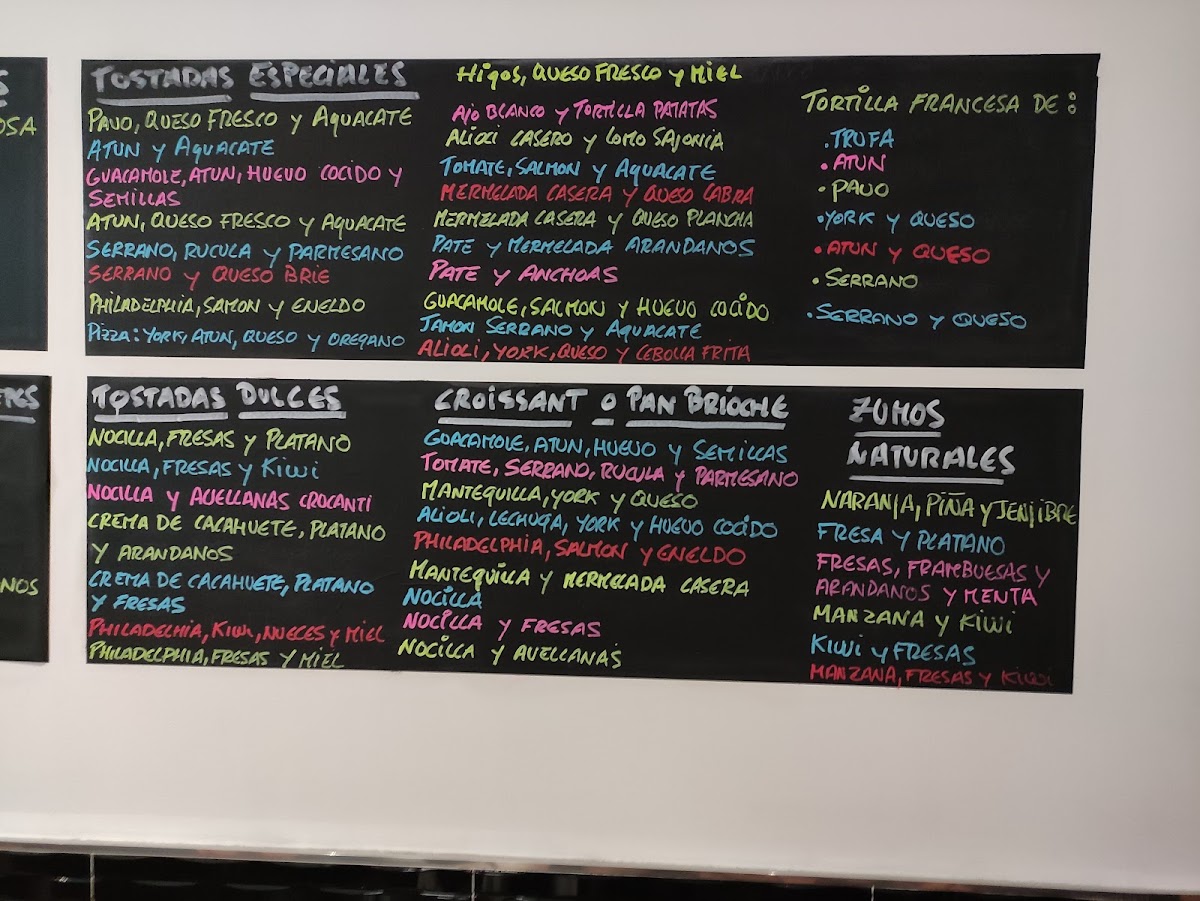 S
OSA
TOSTADAS ESPECIALES
PAVO, QUESO FRESCO Y AGUACATE
ATUN Y AGUACATE
GUACAMOLE, ATUN, HUEVO COCIDO Y
SEMILLAS
ATUN, QUESO FRESCO Y AGUACATE
SERRANO, RUCULA Y PARMESANO
SERRANO Y QUESO BRIE
PHILADELPHIA, SAMON Y ENELDO
PIZZA: YORK, ATUN, QUESO Y OREGANO
HIGOS, QUESO FRESCO Y MIEL
AJO BLANCO Y TORTILLA PATATAS
ALIOLI CASERO Y LOMO SAJONIA
TOMATE, SALMON Y AGUACATE
MERMELADA CASERA Y QUESO CABRA
MERMELADA CASERA Y QUESO PLANCHA
PATE Y MERMELADA ARANDANOS
PATE Y ANCHOAS
GUACAMOLE, SALMON Y HUEVO COCIDO
JAMON SERRANO Y AGUACATE
ALIOLI, YORK, QUESO Y CEBOLLA FRITA
TORTILLA FRANCESA DE:
. TRUFA
. ATUN
. PAVO
. YORK Y QUESO
. ATUN Y QUESO
. SERRANO
. SERRANO Y QUESO
NOS
TOSTADAS DULCES
NOCILLA, FRESAS Y PLATANO
NOCILLA, FRESAS Y KIWI
NOCILLA Y AVELLANAS CROCANTI
CREMA DE CACAHUETE, PLATANO
Y ARANDANOS
CREMA DE CACAHUETE, PLATANO
Y FRESAS
PHILADELHIA, KIWI, NUECES Y MIEL
PHILADELPHIA, FRESAS Y MIEL
CROISSANT O PAN BRIOCHE
GUACAMOLE, ATUN, HUEVO Y SEMILLAS
TOMATE, SERRANO, RUCULA Y PARMESANO
MANTEQUILLA, YORK Y QUESO
ALIOLI, LECHUGA, YORK Y HUEVO COCIDO
PHILADELPHIA, SALMON Y ENELDO
MANTEQUILLA Y MERMELADA CASERA
NOCILLA
NOCILLA Y FRESAS
NOCILLA Y AVELLANAS
ZUMOS
NATURALES
NARANJA, PIÑA Y JENJIBRE
FRESA Y PLATANO
FRESAS, FRAMBUESAS Y
ARANDANOS Y MENTA
MANZANA Y KIWI
KIWI Y FRESAS
MANZANA, FRESAS Y KIWI